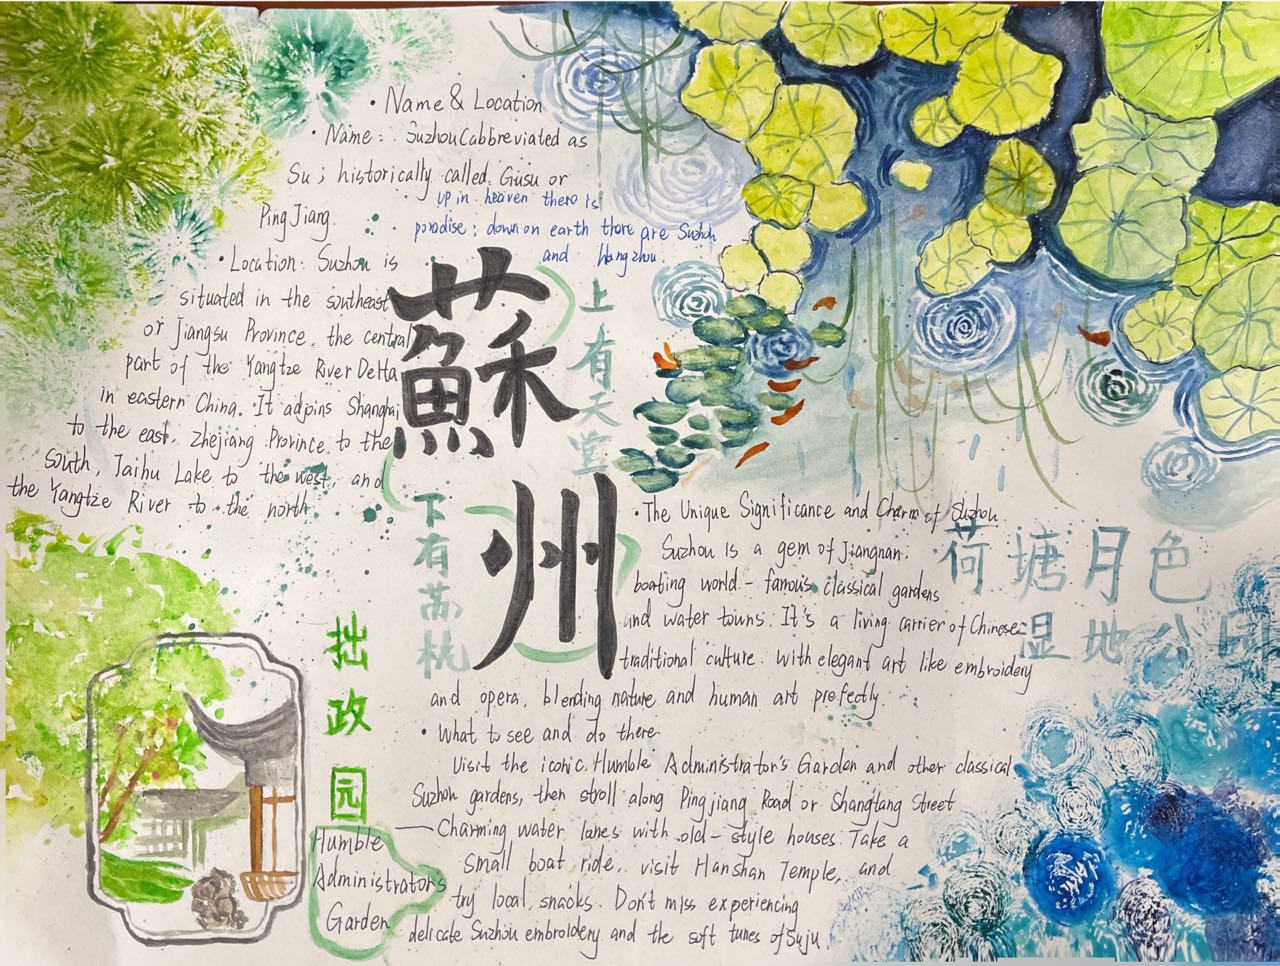 • Name & Location
• Name: Suzhou (abbreviated as
Su; historically called Gusu or
PingJiang.
up in heaven there is
paradise; down on earth there are Suzhou
and Hangzhou.
• Location: Suzhou is
situated in the southeast
or Jiangsu Province, the central
part of the Yangtze River Delta
in eastern China. It adjoins Shanghai
to the east, Zhejiang Province to the
south, Taihu Lake to the west, and
the Yangtze River to the north
蘇州
上有天堂
下有苏杭
• The Unique Significance and Charm of Suzhou
Suzhou is a gem of Jiangnan.
boating world-famous classical gardens
and water towns. It's a living carrier of Chinese
traditional culture. with elegant art like embroidery
and opera, blending nature and human art prefectly.
荷塘月色
湿地公园
• What to see and do there
Visit the iconic Humble Administrator's Garden and other classical
Suzhou gardens, then stroll along Pingjiang Road or Shangtang Street
— Charming water lanes with old-style houses. Take a
small boat ride, visit Hanshan Temple, and
try local snacks. Don't miss experiencing
delicate Suzhou embroidery and the soft tunes of Suju.
拙政园
Humble
Administrator's
Garden